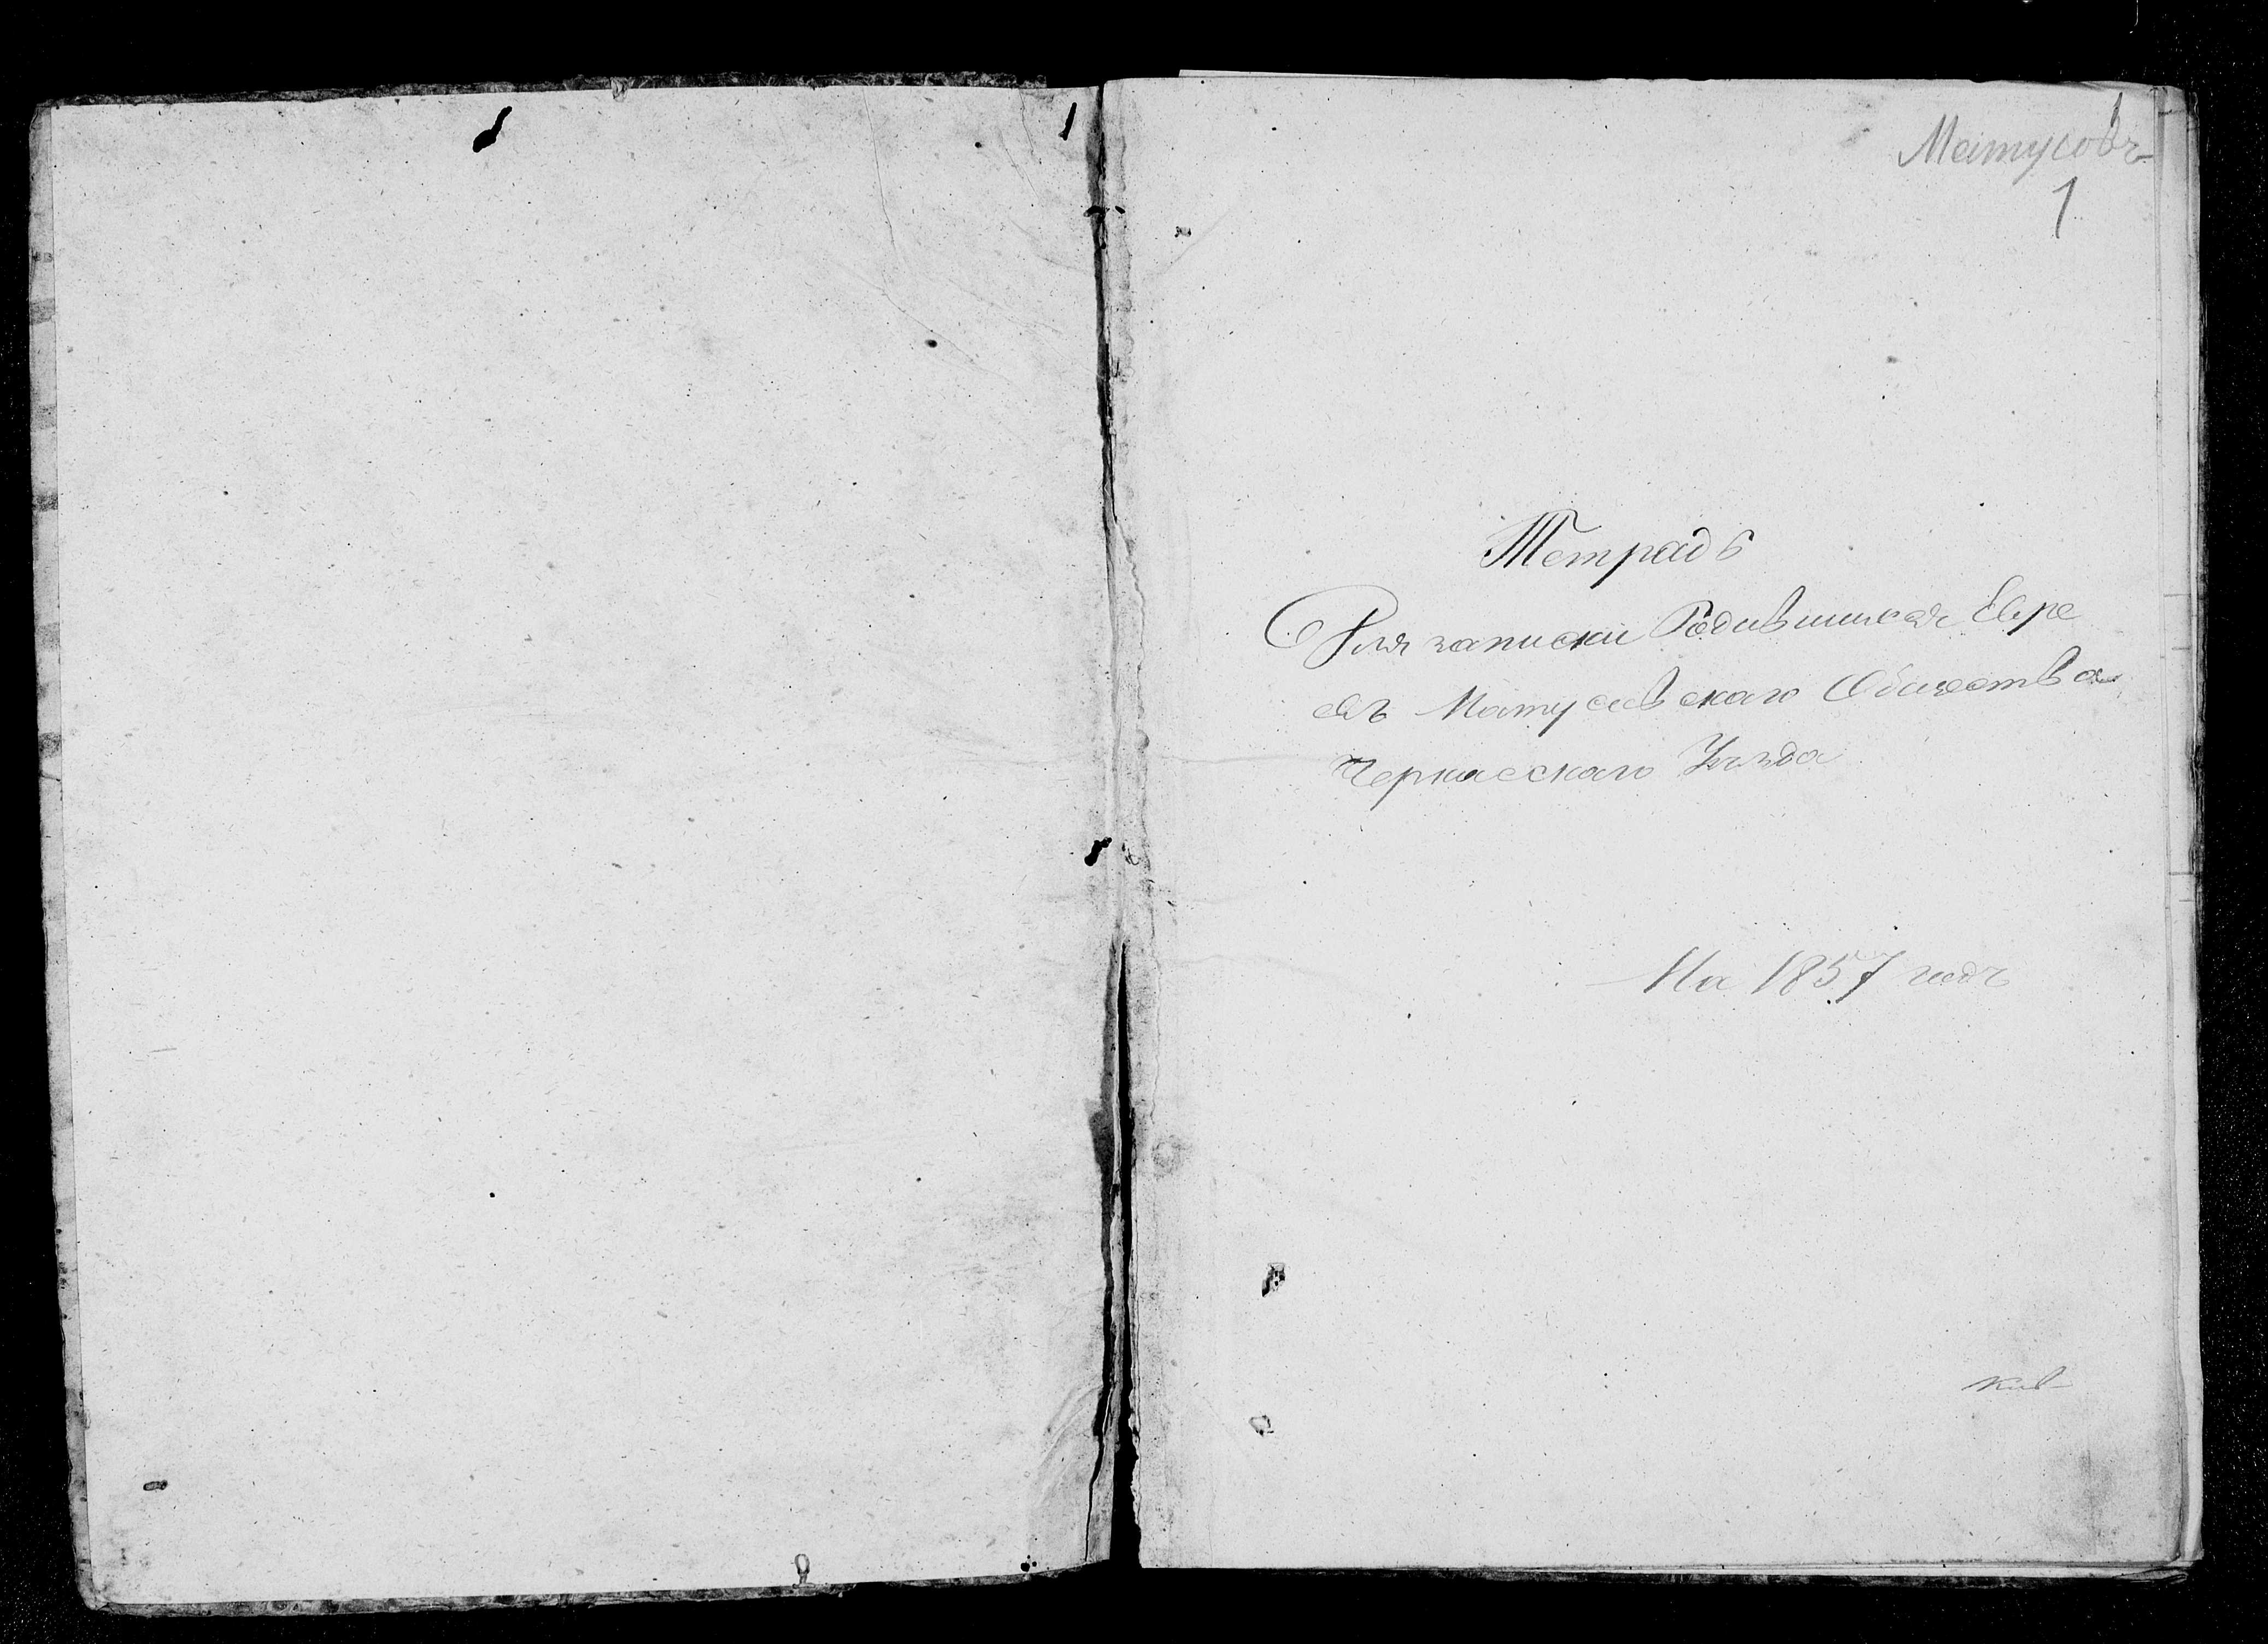 Матусовъ
1
Тетрадь
Для записки Родившихся Евре
евъ Матусовскаго Общества
Черкасскаго Уѣзда
На 1857 годъ